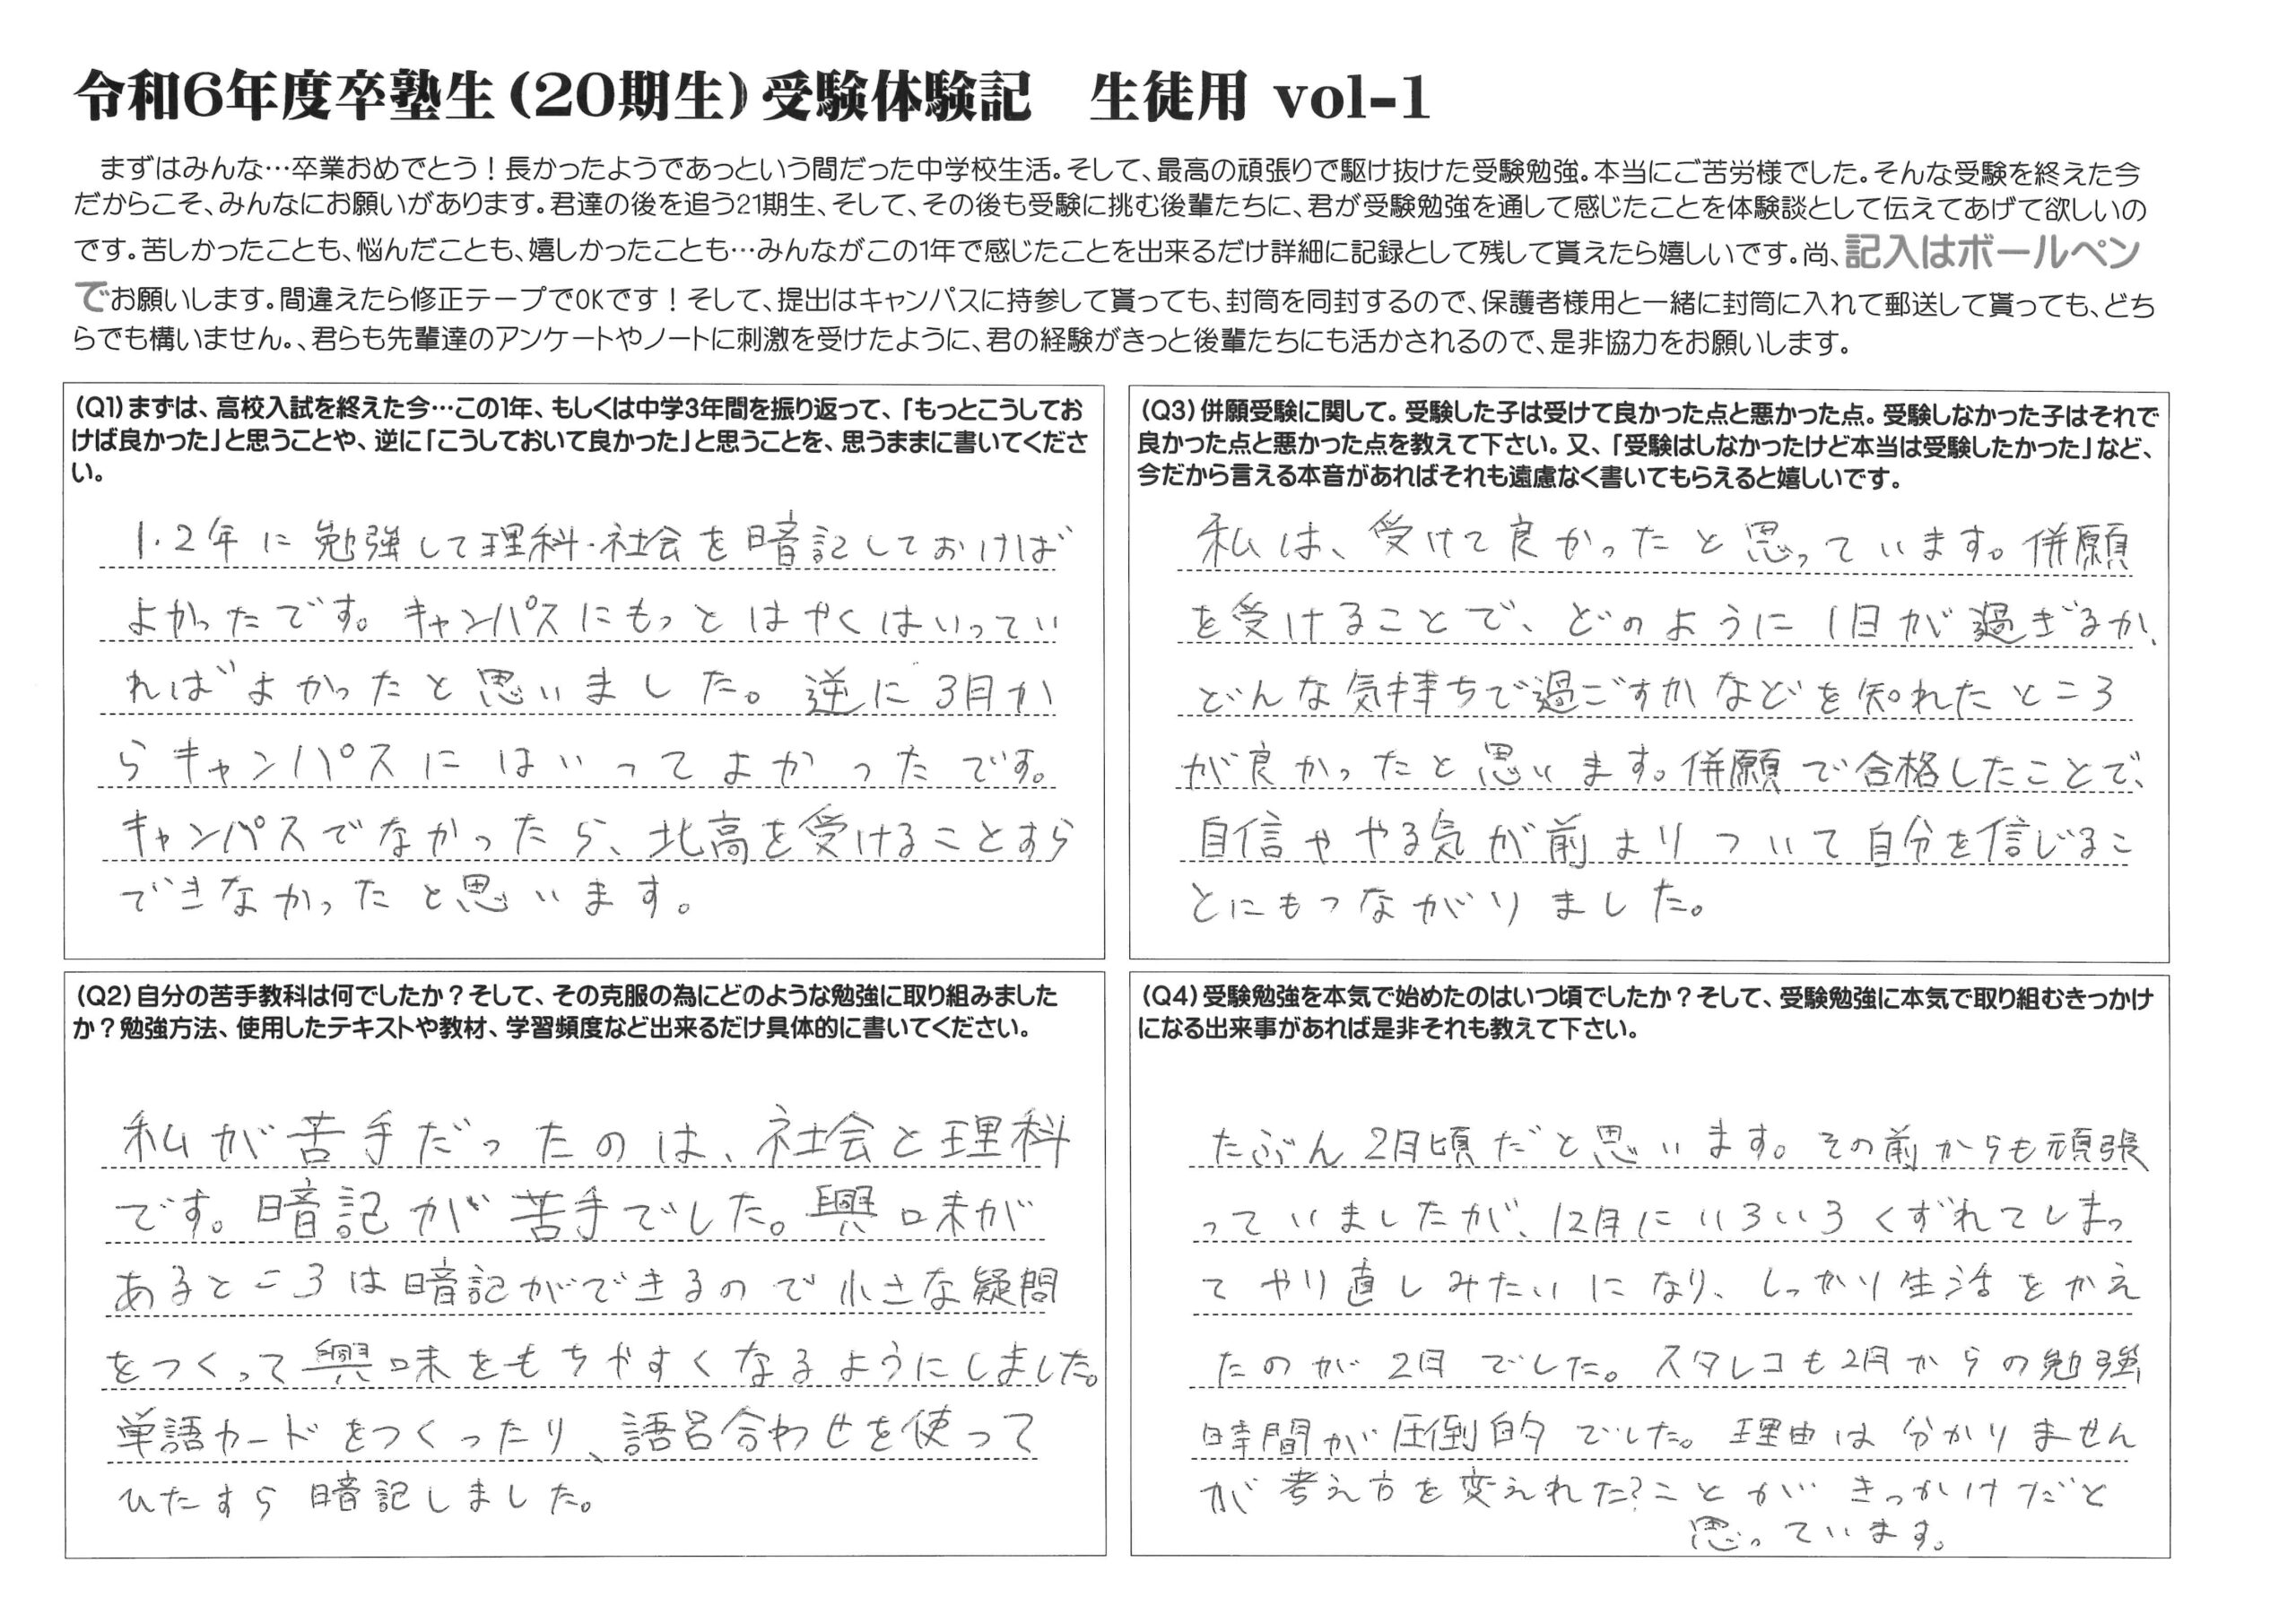 令和6年度卒塾生（20期生）受験体験記　生徒用 vol-1
まずはみんな…卒業おめでとう！長かったようであっという間だった中学校生活。そして、最高の頑張りで駆け抜けた受験勉強。本当にご苦労様でした。そんな受験を終えた今
だからこそ、みんなにお願いがあります。君達の後を追う21期生、そして、その後も受験に挑む後輩たちに、君が受験勉強を通して感じたことを体験談として伝えてあげて欲しいの
です。苦しかったことも、悩んだことも、嬉しかったことも…みんながこの1年で感じたことを出来るだけ詳細に記録として残して貰えたら嬉しいです。尚、記入はボールペン
でお願いします。間違えたら修正テープでOKです！そして、提出はキャンパスに持参して貰っても、封筒を同封するので、保護者様用と一緒に封筒に入れて郵送して貰っても、どち
らでも構いません。、君らも先輩達のアンケートやノートに刺激を受けたように、君の経験がきっと後輩たちにも活かされるので、是非協力をお願いします。
（Q1）まずは、高校入試を終えた今…この1年、もしくは中学3年間を振り返って、「もっとこうしてお
けば良かった」と思うことや、逆に「こうしておいて良かった」と思うことを、思うままに書いてくださ
い。
1・2年に勉強して理科・社会を暗記しておけば
よかったです。キャンパスにもっとはやくはいってい
ればよかったと思いました。逆に3月か
らキャンパスにはいってよかったです。
キャンパスでなかったら、北高を受けることすら
できなかったと思います。
（Q2）自分の苦手教科は何でしたか？そして、その克服の為にどのような勉強に取り組みました
か？勉強方法、使用したテキストや教材、学習頻度など出来るだけ具体的に書いてください。
私が苦手だったのは、社会と理科
です。暗記が苦手でした。興味が
あるところは暗記ができるので小さな疑問
をつくって興味をもちやすくなるようにしました。
単語カードをつくったり、語呂合わせを使って
ひたすら暗記しました。
（Q3）併願受験に関して。受験した子は受けて良かった点と悪かった点。受験しなかった子はそれで
良かった点と悪かった点を教えて下さい。又、「受験はしなかったけど本当は受験したかった」など、
今だから言える本音があればそれも遠慮なく書いてもらえると嬉しいです。
私は、受けて良かったと思っています。併願
を受けることで、どのように1日が過ぎるか、
どんな気持ちで過ごすかなどを知れたところ
が良かったと思います。併願で合格したことで、
自信ややる気が前よりついて自分を信じるこ
とにもつながりました。
（Q4）受験勉強を本気で始めたのはいつ頃でしたか？そして、受験勉強に本気で取り組むきっかけ
になる出来事があれば是非それも教えて下さい。
たぶん2月頃だと思います。その前からも頑張
っていましたが、12月にいろいろくずれてしまっ
てやり直しみたいになり、しっかり生活をかえ
たのが2月でした。スタレコも2月からの勉強
時間が圧倒的でした。理由は分かりません
が考え方を変えれた?ことがきっかけだと
思っています。